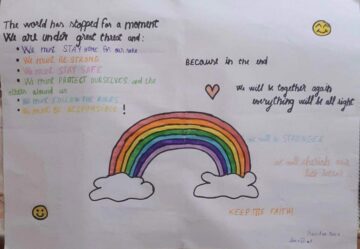 The world has stopped for a moment
We are under great threat and:
We must STAY home for our sake
We must BE STRONG
We must STAY SAFE
We must PROTECT OURSELVES and the
others around us
We must FOLLOW THE RULES
We must BE RESPONSIBLE!
Because in the end
we will be together again
everything will be all right
we will be STRONGER
we will cherish our
KEEP THE FAITH